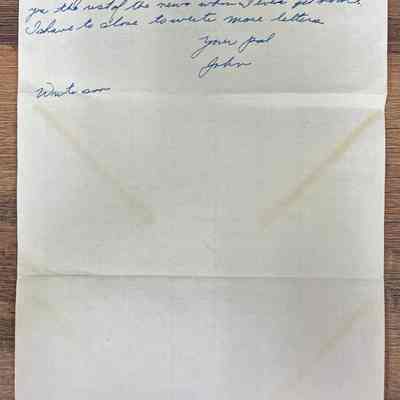 you the rest of the news when I ever get home.
I have to close to write more letters
Your pal
John
Write soon